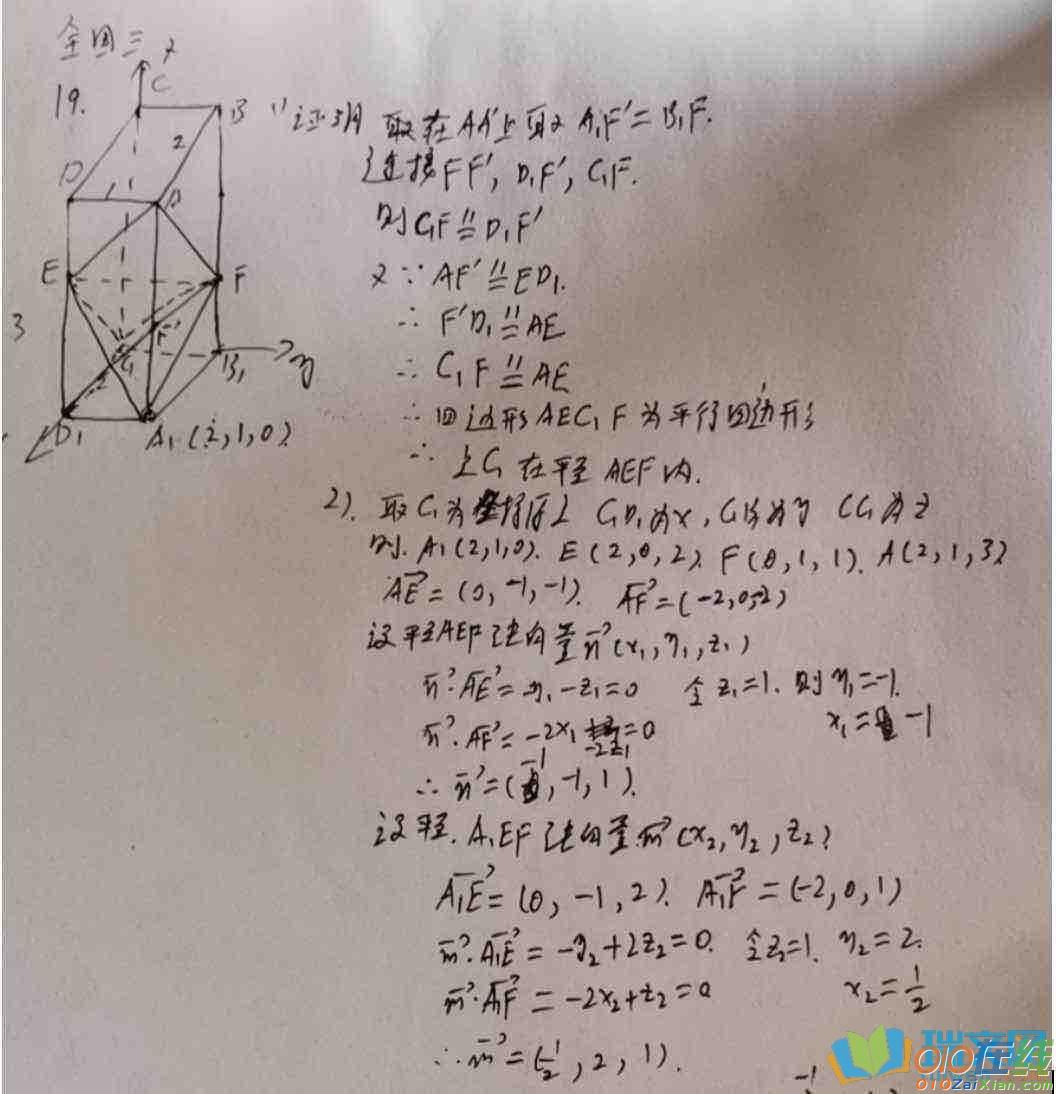 全国三
19.
1) 证明 取在AA'上取 A₁F'=B₁F.
连接FF', D₁F', C₁F.
则C₁F∥=D₁F'
又∵ AF'∥=ED₁.
∴ F'D₁∥=AE
∴ C₁F∥=AE
∴四边形AEC₁F为平行四边形
∴ 点C₁在平面AEF内.
2). 取C₁为坐标原点 C₁D₁为x, C₁B₁为y CC₁为z
则. A₁(2,1,0). E(2,0,2). F(0,1,1). A(2,1,3)
AE=(0,-1,-1). AF=(-2,0,-2)
设平面AEF法向量n(x₁,y₁,z₁)
n·AE=-y₁-z₁=0 令z₁=1. 则y₁=-1.
n·AF=-2x₁-2z₁=0 x₁=-1
∴ n=(-1,-1,1).
设平面.A₁EF法向量m(x₂,y₂,z₂)
A₁E=(0,-1,2). A₁F=(-2,0,1)
m·A₁E=-y₂+2z₂=0. 令z₂=1. y₂=2.
m·A₁F=-2x₂+z₂=0 x₂=1/2
∴m=(1/2,2,1).
C
B
D
2
1
A
E
F
3
F'
C₁
2
B₁
y
D₁
A₁(2,1,0)
010在线
010ZaiXian.com